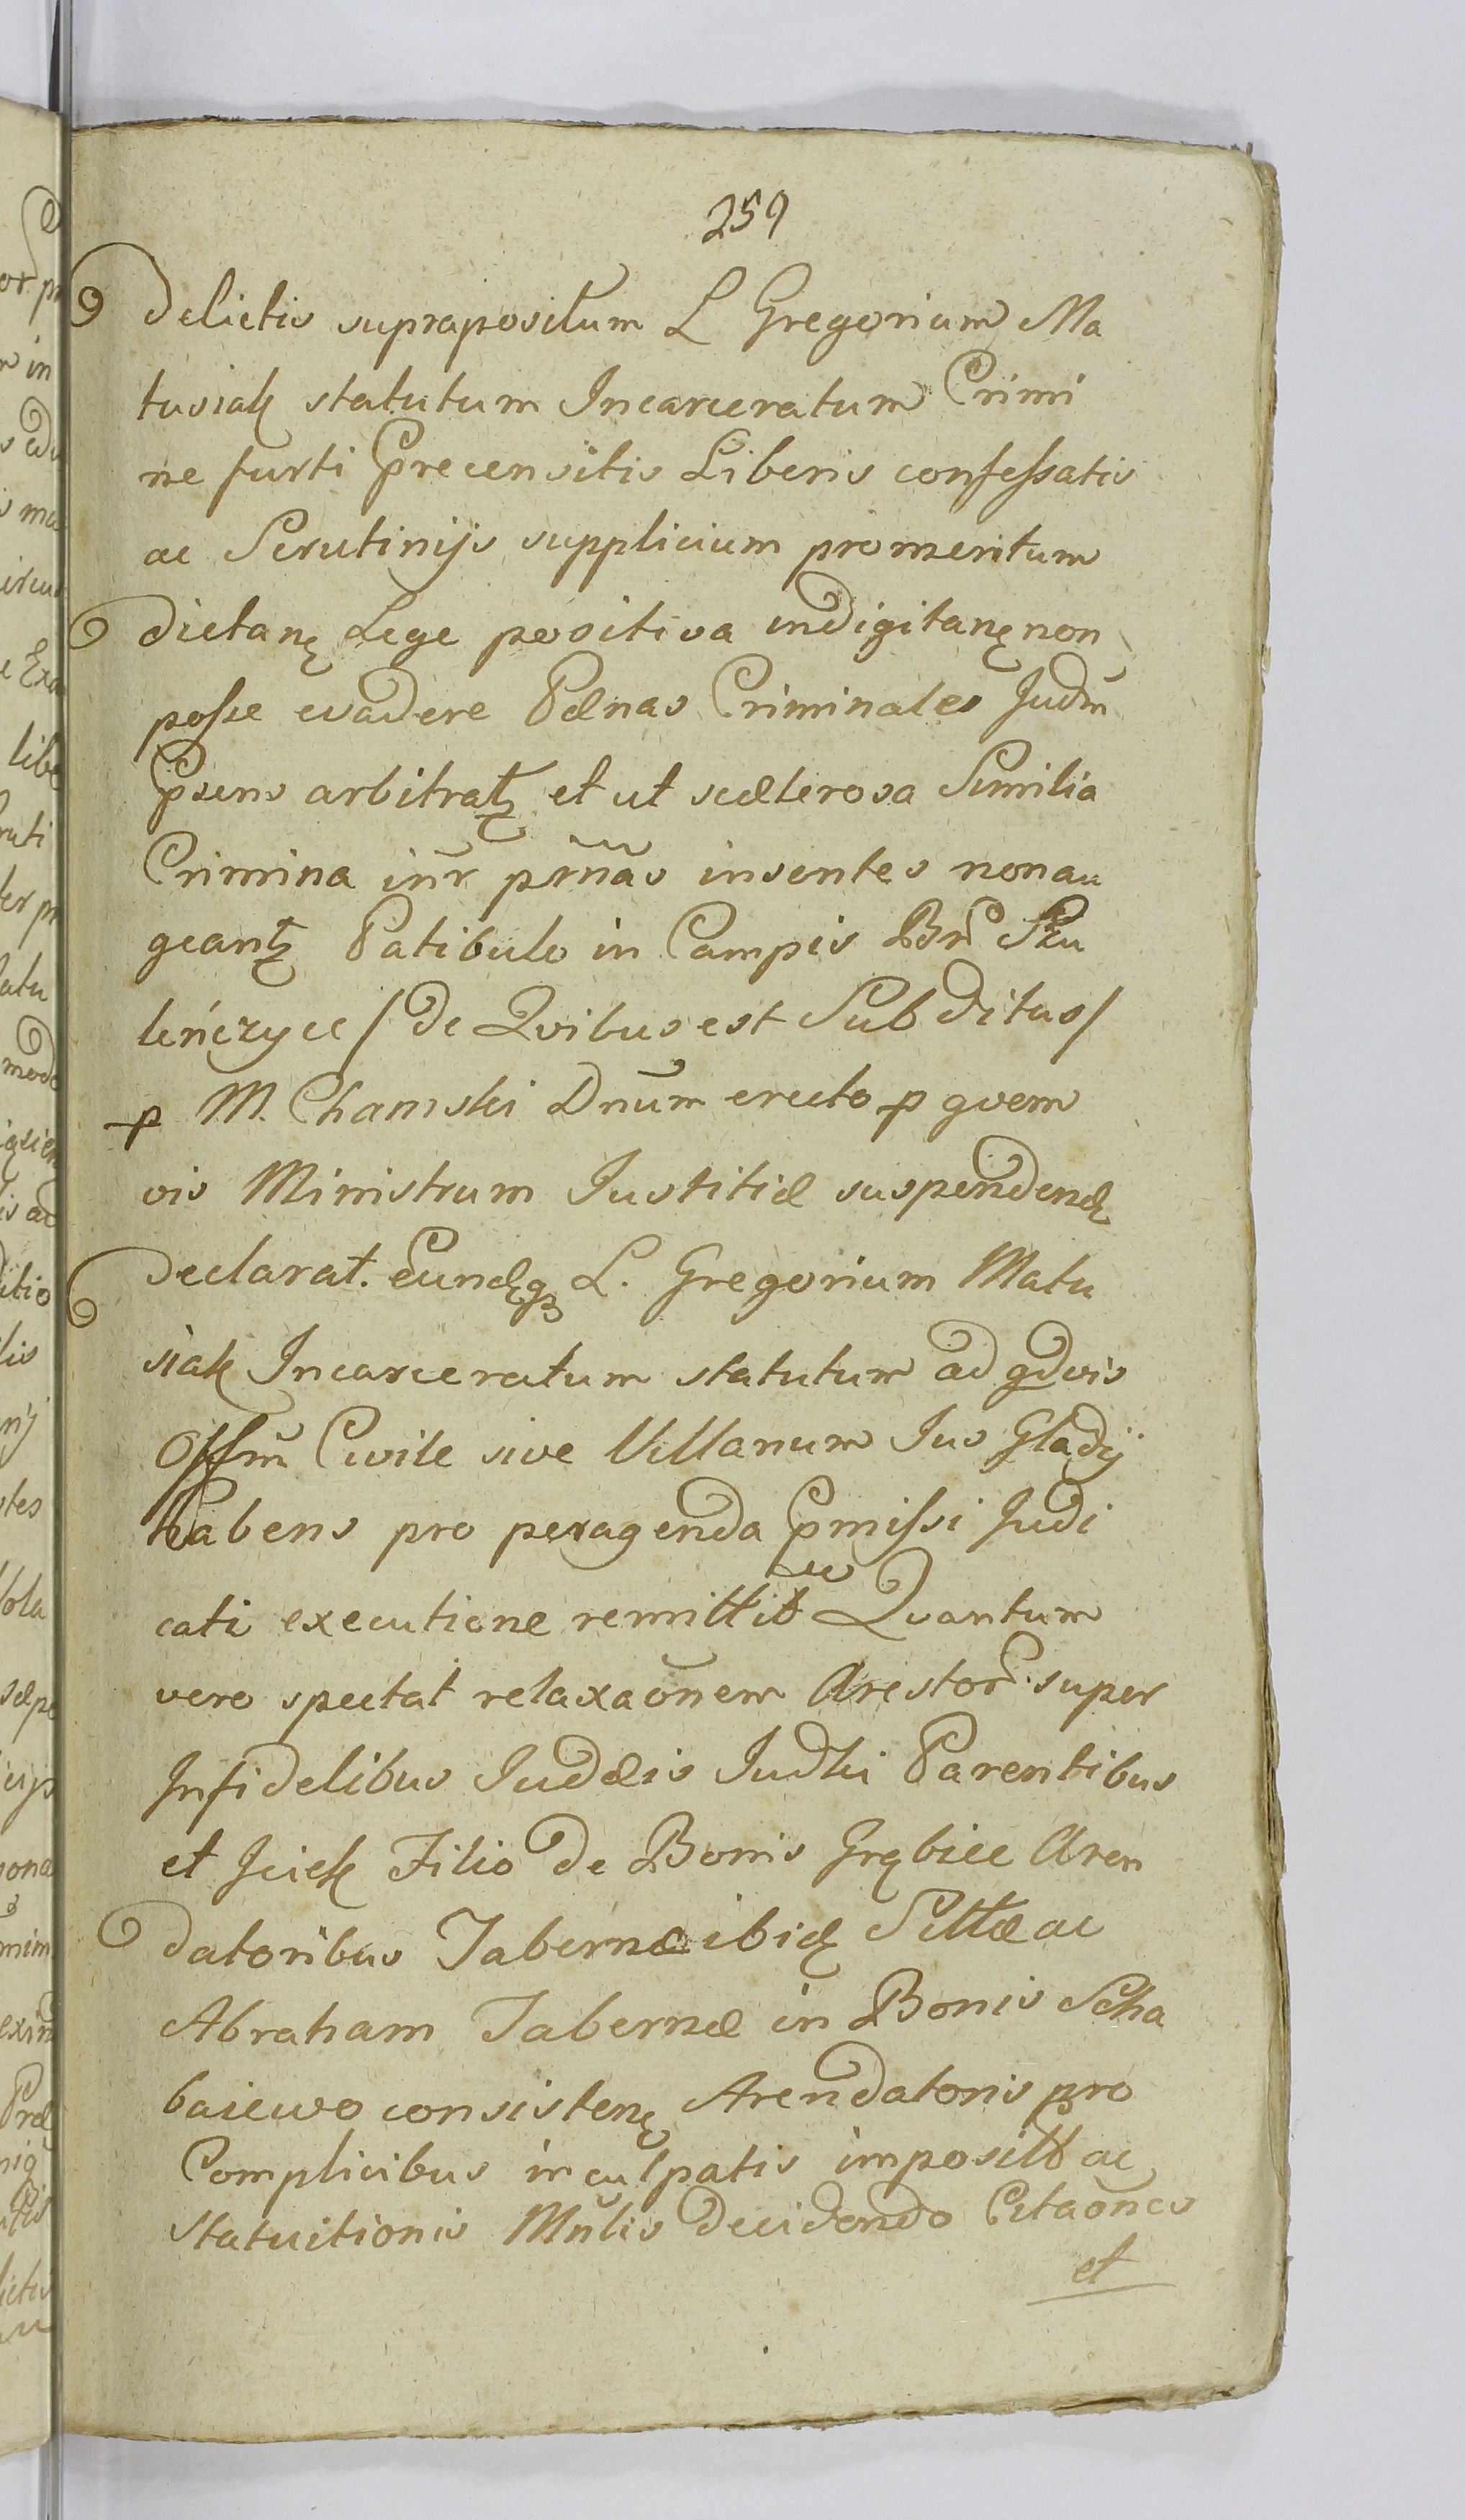 259
Delictis suprapositum L Gregorium Ma
tusiak statutum Incarceratum Crimi
ne furti Precensitis Liberis confessatis
ac Scrutinijs supplicium promeritum
dictanę Lege positiva indigitanę non
posse evadere Pænas Criminales Judm̃
Pſens arbitratʒ et ut scælerosa Similia
Crimina inr̃ pr̃nãs insentes non au
geantʒ Patibulo in Campis Br̃ Sku
leńczyce / de Qvibus est Subditus /
p M. Chamski Dnũm erecto p qvem
vis Ministrum Justitiæ suspendendę
Declarat. Eundęqʒ L. Gregorium Matu
siak Incarceratum statutum ad qdvis
Offm̃ Civile sive Villanum Jus Gladij
Habens pro peragenda Pmissi Judi
cati executione remittit Qvantum
vero spectat relaxaõnem Arestor̃ super
Infidelibus Judæis Judki Parentibus
et Jcick Filio de Bonis Grębice Aren
datoribus Tabernæ ibidę Sittæ ac
Abraham Tabernæ in Bonis Scha
baiewo consistenę Arendatoris pro
Complicibus inculpatis imposit ac
statuitionis Mñlis decidendo Citaõnes
et